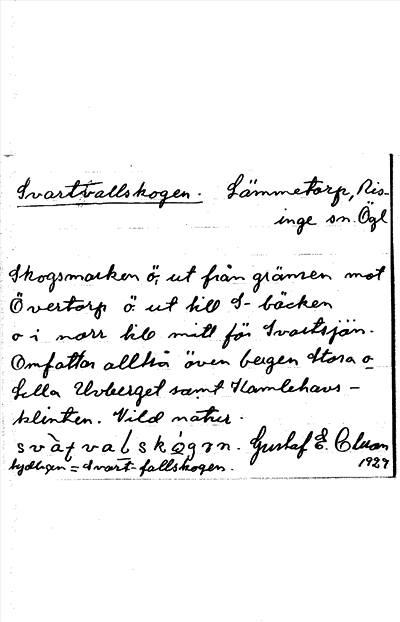 Svartvallskogen. Lämmetorp, Ris-
inge sn. Ögl
Skogsmarken ö, ut från gränsen mot
Övertorp ö. ut till S-bäcken
o i norr till mitt för Svartsjön.
Omfattar alltså även bergen Stora o
Lilla Uvberget samt Hamlehavs-
klinten. Vild natur.
Gustaf E. Olsson
tydligen = Svart-fallskogen. 1927